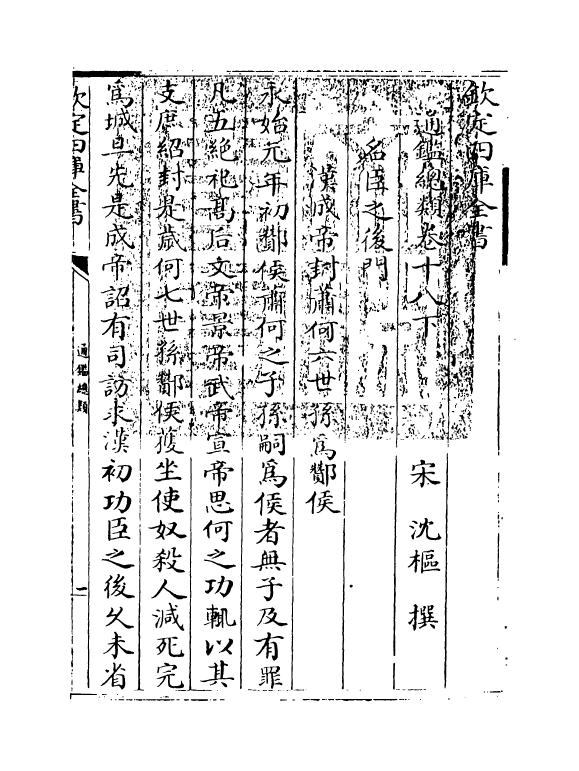 欽定四庫全書
通鑑總類卷十八下
宋 沈樞 撰
名臣之後門
漢成帝封蕭何六世孫爲酇侯
永始元年初酇侯蕭何之子孫嗣爲侯者無子及有罪
凡五絶祀高后文帝景帝武帝宣帝思何之功輒以其
支庶紹封是歲何七世孫酇侯獲坐使奴殺人減死完
爲城旦先是成帝詔有司訪求漢初功臣之後久未省
欽定四庫全書
通鑑總類
一